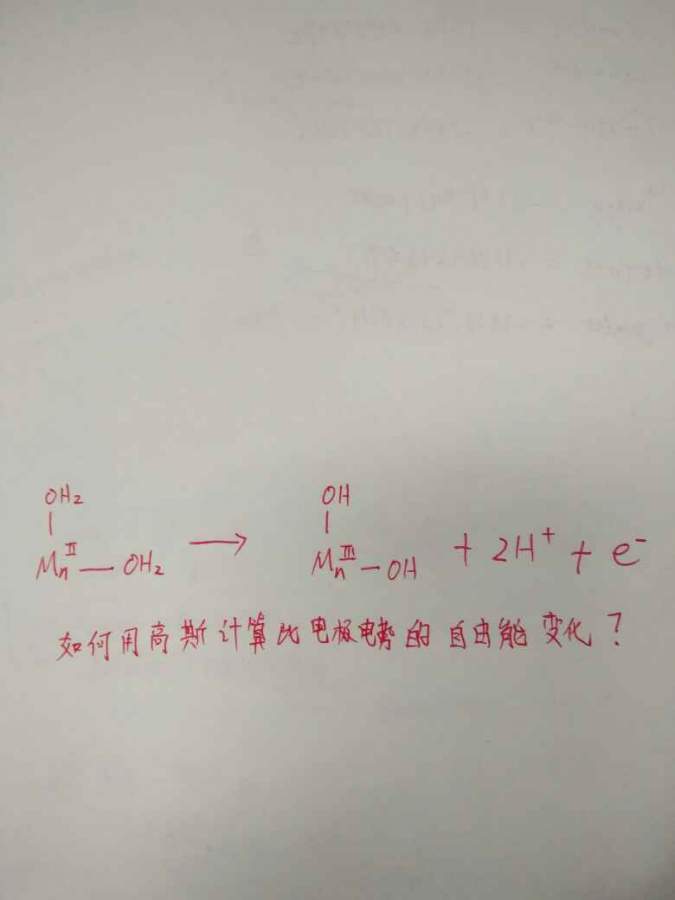 OH₂ OH
Mn^II — OH₂ → Mn^III — OH + 2H⁺ + e⁻
如何用高斯计算此电极电势的自由能变化?